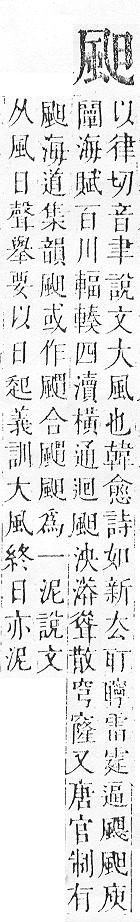 䫻
以律切音聿說文大風也韓愈詩如新去耵聹雷霆逼颶䫻庾
闡海賦百川輻輳四瀆橫通迴䫻泱漭聳散穹窿又唐官制有
䫻海道集韻䫻或作颶合颶䫻爲一泥說文
从風日聲舉要以日起義訓大風終日亦泥